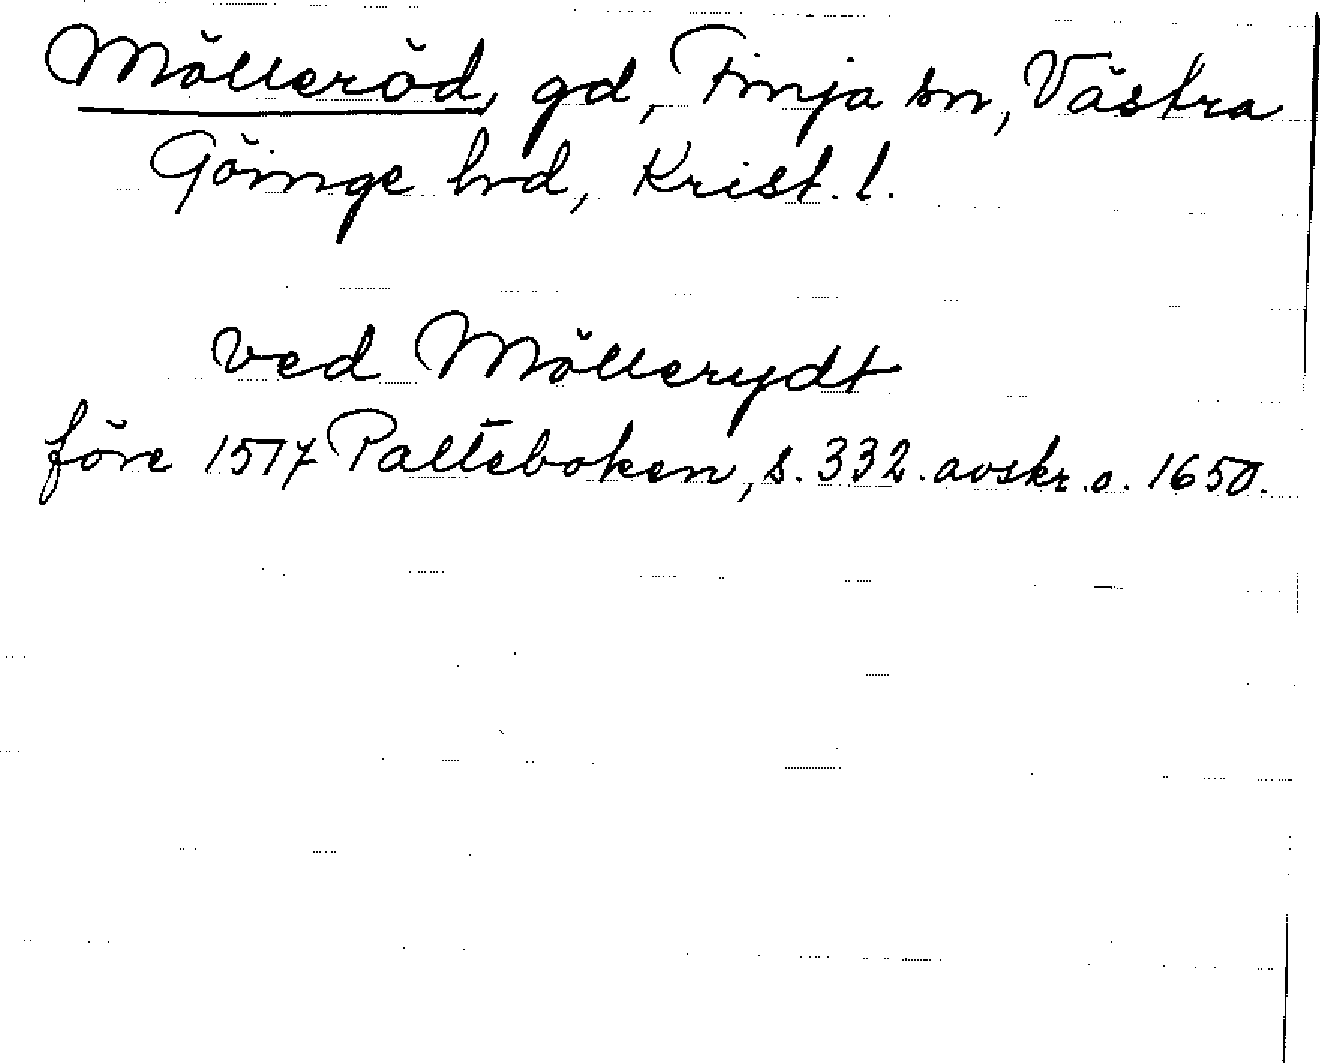 Mölleröd, gd, Finja sn, Västra
Göinge hrd, Krist. l.
ved Möllerydt
före 1517 Palteboken, s. 332. avskr. o. 1650.